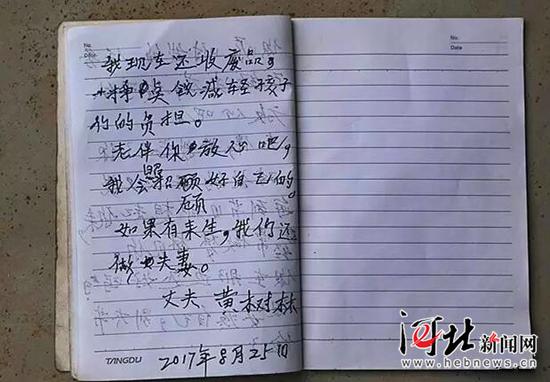 No.
Date
No.
Date
我现在还收废品,
挣点钱减轻孩子
们的负担。
老伴你放心吧,
我会照顾好自己的,
顾
如果有来生,我们还
做夫妻。
丈夫 黄树林
TANGDU
2017年8月25日
河北新闻网
www.hebnews.cn